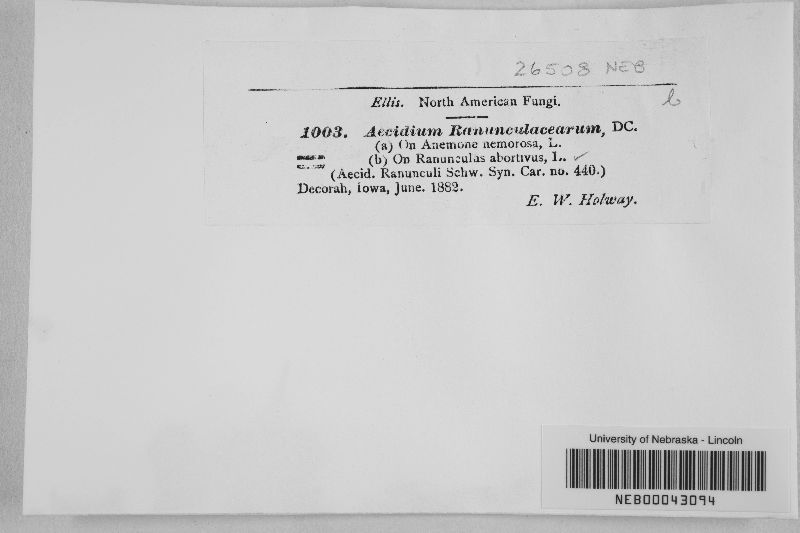 26508 NEB
Ellis. North American Fungi.
b
1003. Aecidium Ranunculacearum, DC.
(a) On Anemone nemorosa, L.
(b) On Ranunculas abortivus, L. ✓
(Aecid. Ranunculi Schw. Syn. Car. no. 440.)
Decorah, Iowa, June. 1882.
E. W. Holway.
University of Nebraska - Lincoln
NEB00043094